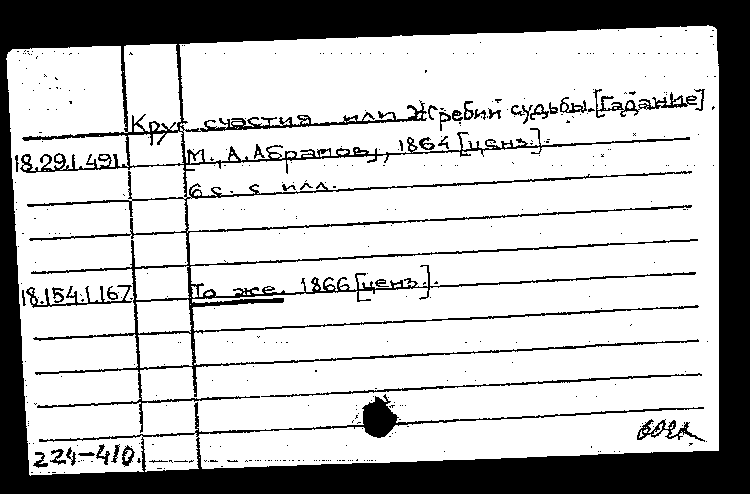 Круг счастия или Жребий судьбы. [Гадание].
18.29.1.491. М., А. Абрамов, 1864 [ценз.].
6 с. с илл.
18.154.1.167 То же. 1866 [ценз.].
224-410.